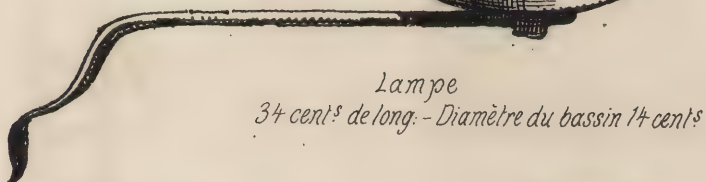 Lampe
34 cent.s de long: - Diamètre du bassin 14 cent.s